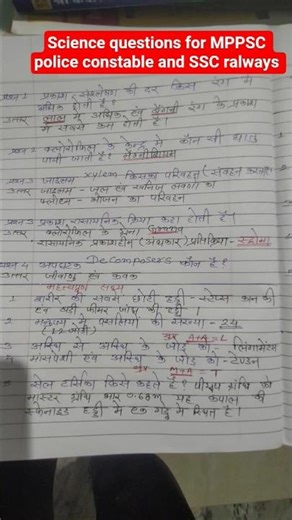 Science questions for MPPSC
police constable and SSC ralways
प्रश्न 1 प्रकाश संश्लेषण की दर किस रंग में
अधिक होती है?
उत्तर लाल में अधिक एवं बैंगनी रंग के प्रकाश
में सबसे कम होती है।
प्रश्न 2 क्लोरोफिल के केन्द्र में कौन सी धातु
पायी जाती है? मैग्नीशियम
जाइलम xylem किसका परिवहन (संवहन करता है?
उत्तर जाइलम - जल एवं खनिज लवणों का
फ्लोएम - भोजन का परिवहन
प्रश्न 3 प्रकाश रासायनिक क्रिया कहा होती है।
उत्तर क्लोरोफिल के ग्रेना Grana
- रासायनिक प्रकाशहीन (अंधकार) प्रतिक्रिया - स्ट्रोमा
प्रश्न 4 अपघटक Decomposers कौन है?
उत्तर जीवाणु एवं कवक
महत्वपूर्ण लक्ष्य
1 शरीर की सबसे छोटी हड्डी - स्टेप्स कान की
एवं बड़ी फीमर जांघ की हड्डी।
2 मनुष्य में पसलियों की संख्या - 24
(12 जोड़ी)
A+A=L
3 अस्थि से अस्थि के जोड़ को - लिगामेंटस
4 मांसपेशी एवं अस्थि के जोड़ को - टेण्डन
M+A = T
5 सेल टर्सिका किसे कहते है? पीयूष ग्रंथि को
मास्टर ग्रंथि भार 0.6gm यह कपाल की
स्फेनाइड हड्डी में एक गड्ढे में स्थित है।